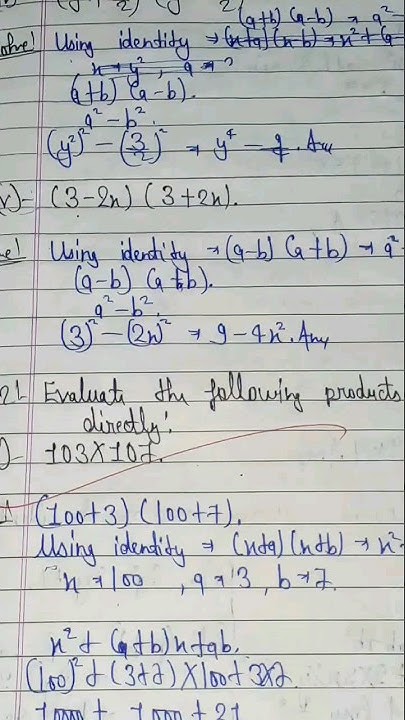 (a+b) (a-b) → a²-
Solve! Using identity → (x+a)(x+b) → x² + (a
x → y², a → ?
(a+b) (a-b).
a² - b².
(y²)² - (3/2)² → y⁴ - 9/4. Ans
v)- (3-2x) (3+2x).
Using identity → (a-b) (a+b) → a²-
(a-b) (a+b).
a² - b².
(3)² - (2x)² → 9 - 4x². Ans
2! Evaluate the following products
directly:
103×107.
(100+3) (100+7).
Using identity → (x+a)(x+b) → x²
x → 100, a → 3, b → 7.
x² + (a+b)x+ab.
(100)² + (3+7)×100+3×7.
+ 1000 + 21